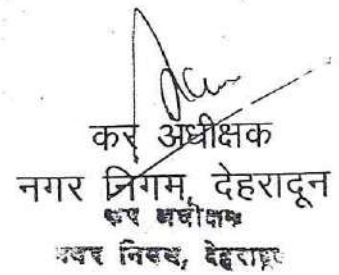 कर अधीक्षक
नगर निगम, देहरादून
कर अधीक्षक
नगर निगम, देहरादून